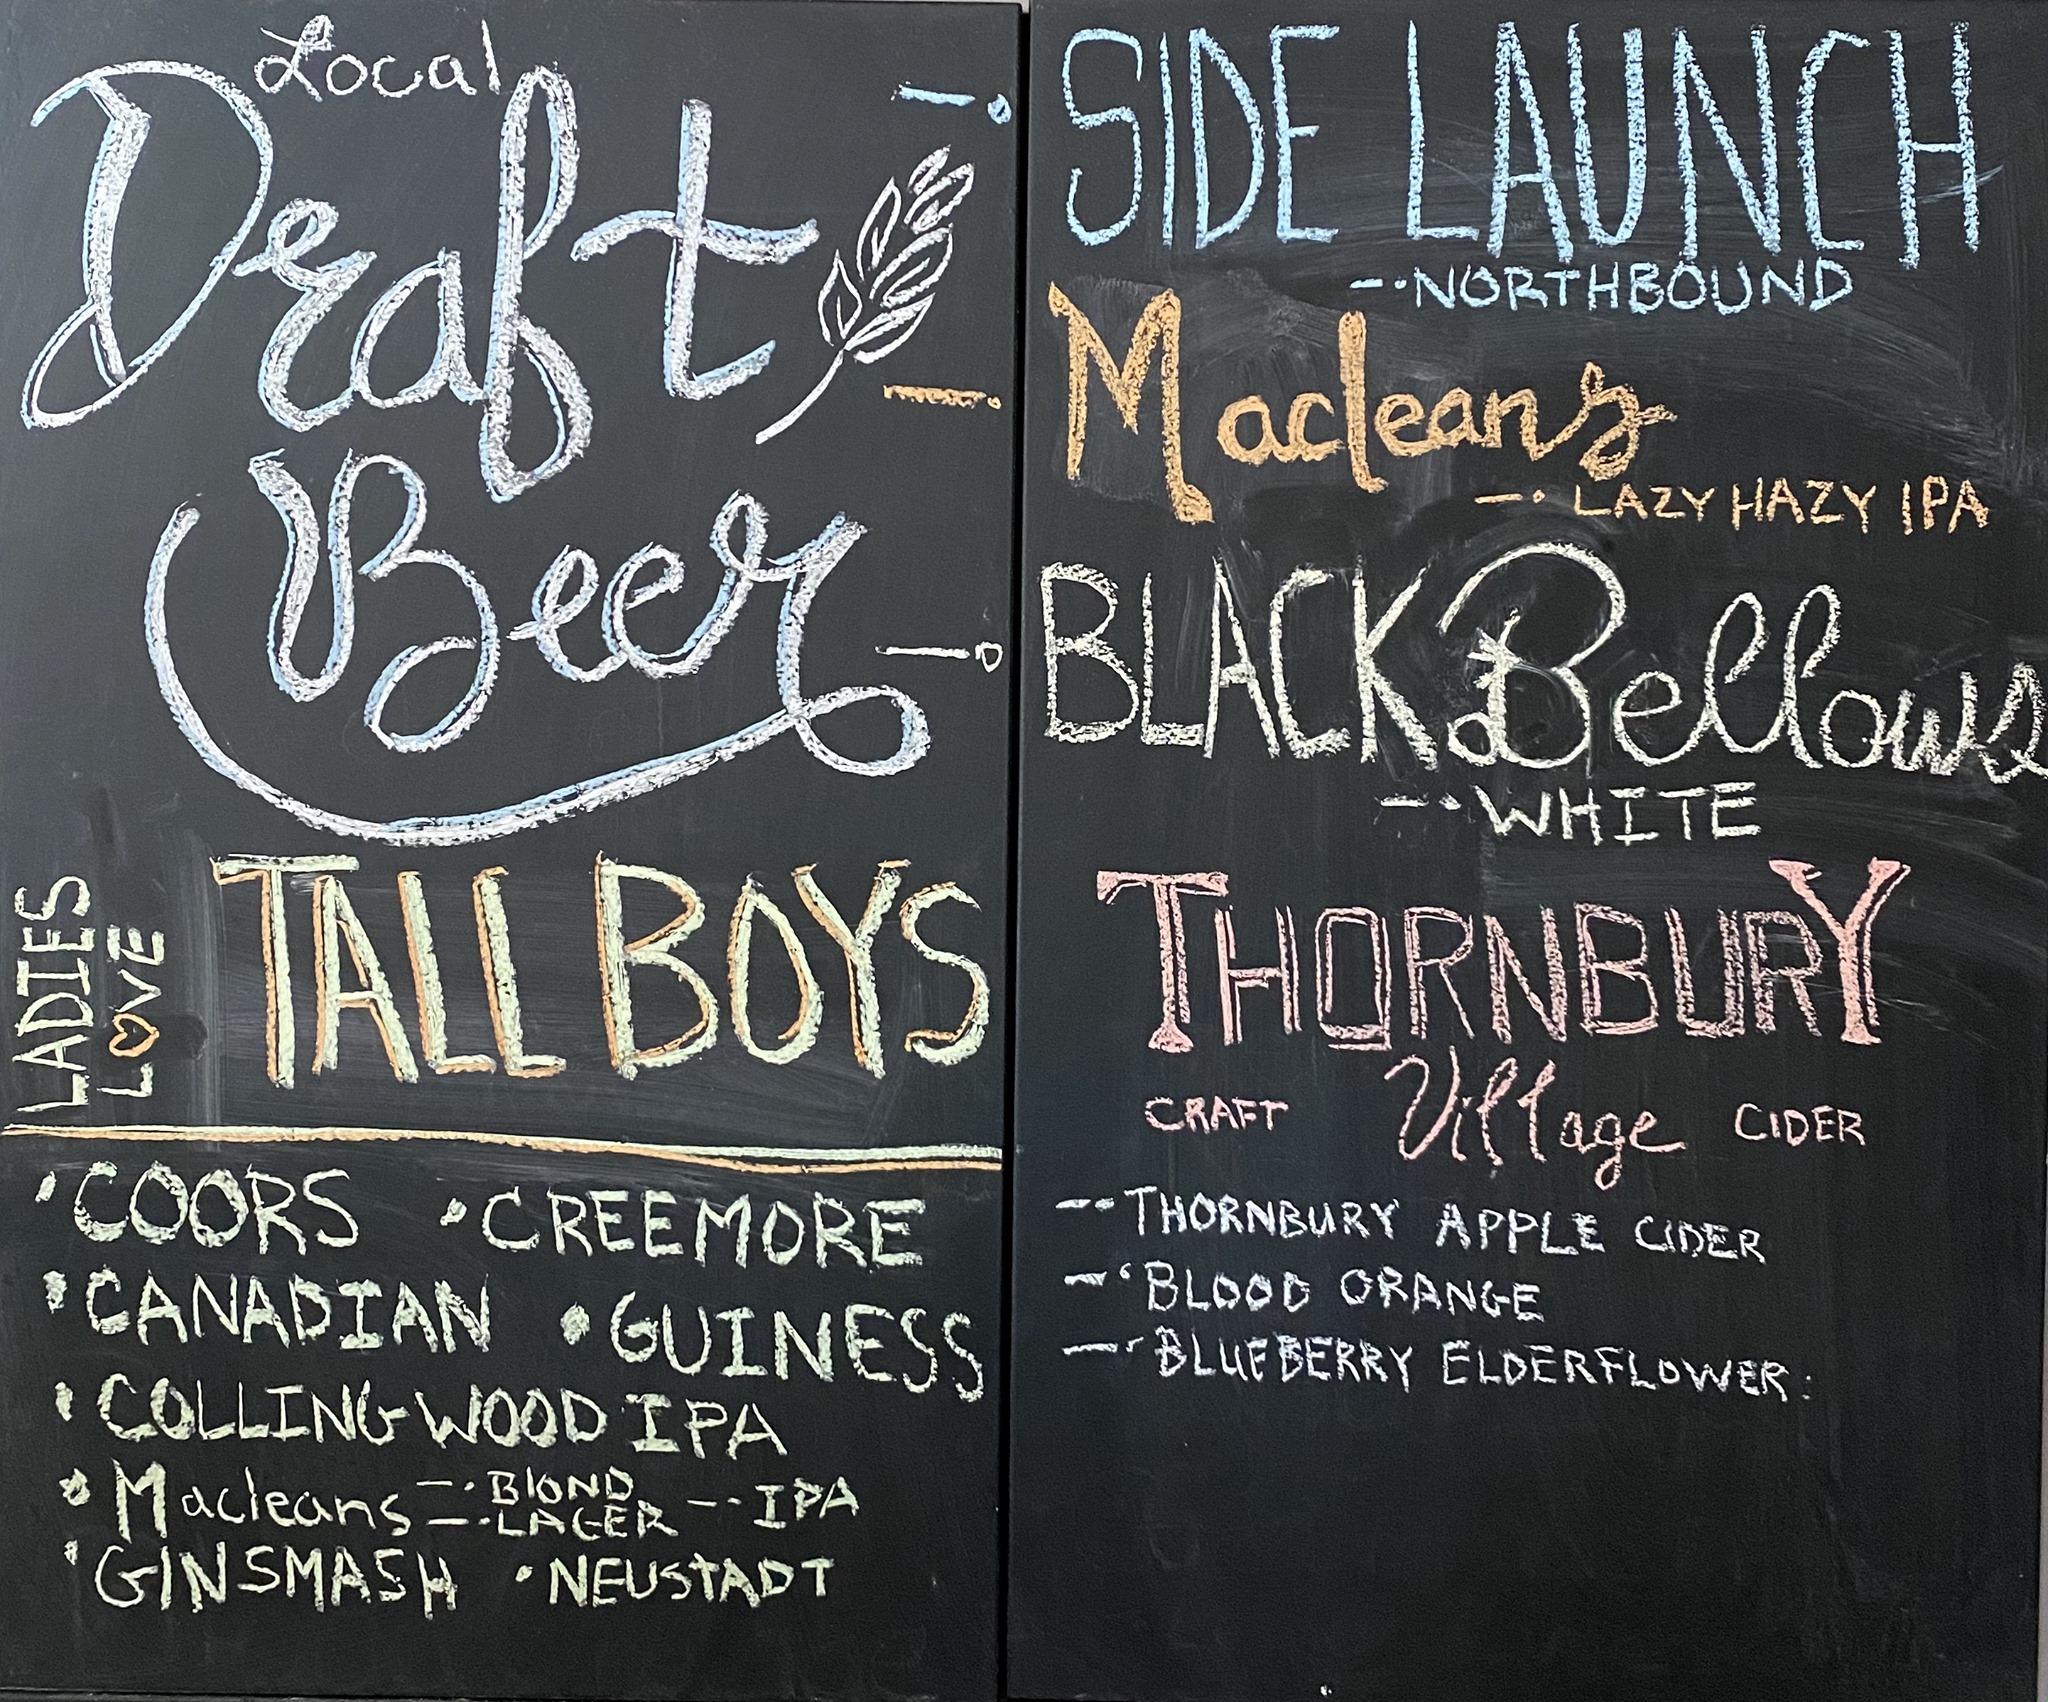 Local
Draft
Beer
LADIES
LOVE
TALL BOYS
• COORS • CREEMORE
• CANADIAN • GUINESS
• COLLINGWOOD IPA
• Macleans —• BlOND —• IPA
—• LAGER
• GINSMASH • NEUSTADT
SIDE LAUNCH
—• NORTHBOUND
Macleans
—• LAZY HAZY IPA
BLACK Bellows
—• WHITE
THORNBURY
CRAFT Village CIDER
—• THORNBURY APPLE CIDER
—• BLOOD ORANGE
—• BLUEBERRY ELDERFLOWER.